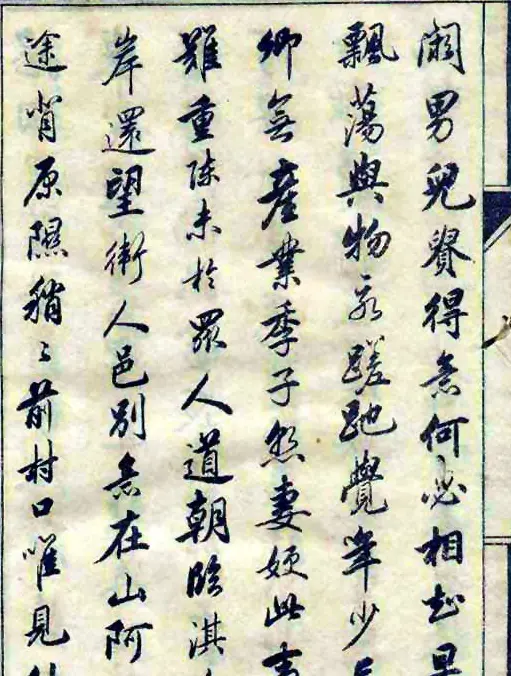 闊男兒貴得意何必相知早
飄蕩與物永蹉跎覺年少
卿無產業季子妻嫂此事
難重陳未於眾人道朝臨淇
岸還望衛人邑別意在山阿
途背原隰稍々前村口唯見